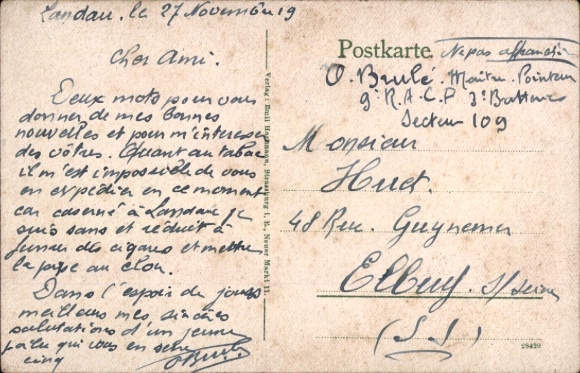 Landau, le 27 Novembre 19
Cher Ami.
Deux mots pour vous
donner de mes bonnes
nouvelles et pour m'interesser
des vôtres. Quant au tabac
il m'est impossible de vous
en expédier en ce moment
car caserné à Landau je
suis sans et réduit à
fumer des cigares et mettre
la pipe au clou.
Dans l'espoir de jours
meilleurs mes sincères
salutations d'un jeune
poilu qui vous en serre
cinq
O Brulé
Verlag: Emil Hartmann, Strassburg i. E., Neuer Markt 11.
Postkarte. Ne pas affranchir
O. Brulé. Maître. Pointeur
9e R.A.C.P 3e Batterie
Secteur 109
Monsieur
Huet.
48 Rue. Guynemer
Elbeuf. s/seine
(S I)
28420